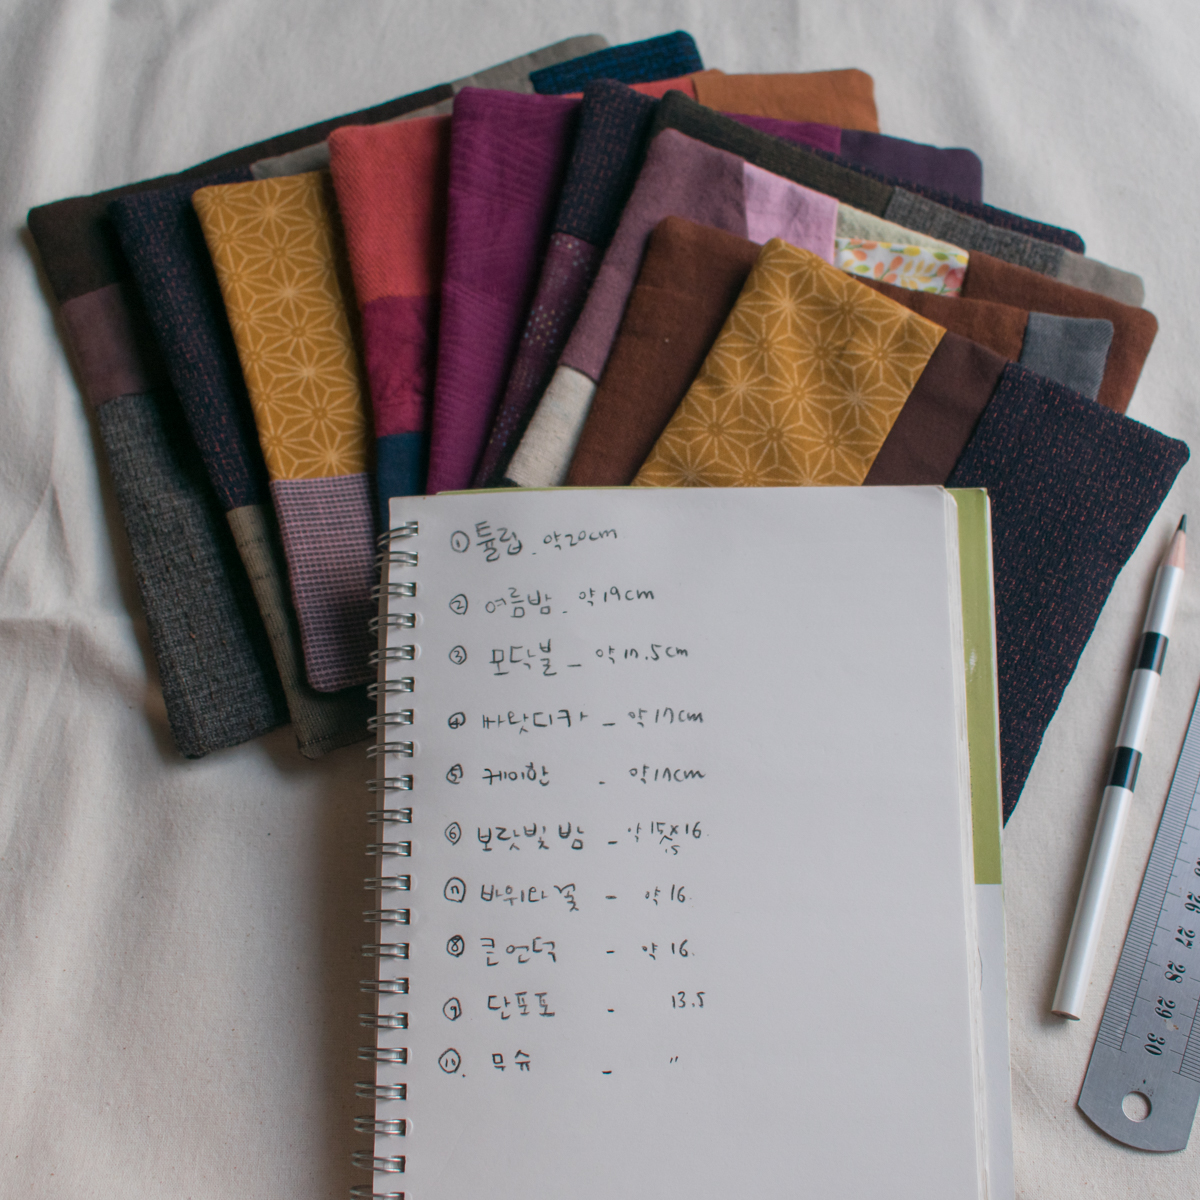 ① 튤립 - 약 20cm
② 여름밤 - 약 19cm
③ 모닥불 - 약 17.5cm
④ 싸랏디카 - 약 17cm
⑤ 케이한 - 약 17cm
⑥ 보랏빛 밤 - 약 15.5×16.
⑦ 바위다꽃 - 약 16.
⑧ 큰언덕 - 약 16.
⑨ 단포포 - 13.5
⑩. 무슈 - "
26 27 28 29 30